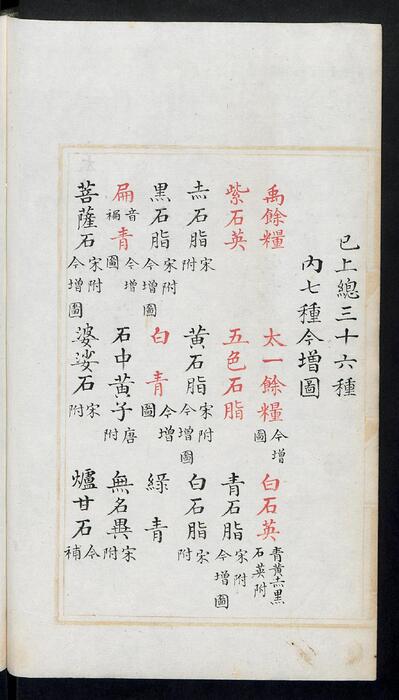 已上總三十六種
內七種今增圖
禹餘糧 太一餘糧 今增圖 白石英 青黃赤黑石英附
紫石英 五色石脂 青石脂 宋附今增圖
赤石脂 宋附 黃石脂 宋附今增圖 白石脂 宋附
黑石脂 宋附今增圖 白青 今增圖 綠青
扁 音褊 青 今增圖 石中黃子 唐附 無名異 宋附
菩薩石 宋附今增圖 婆娑石 宋附 爐甘石 今補